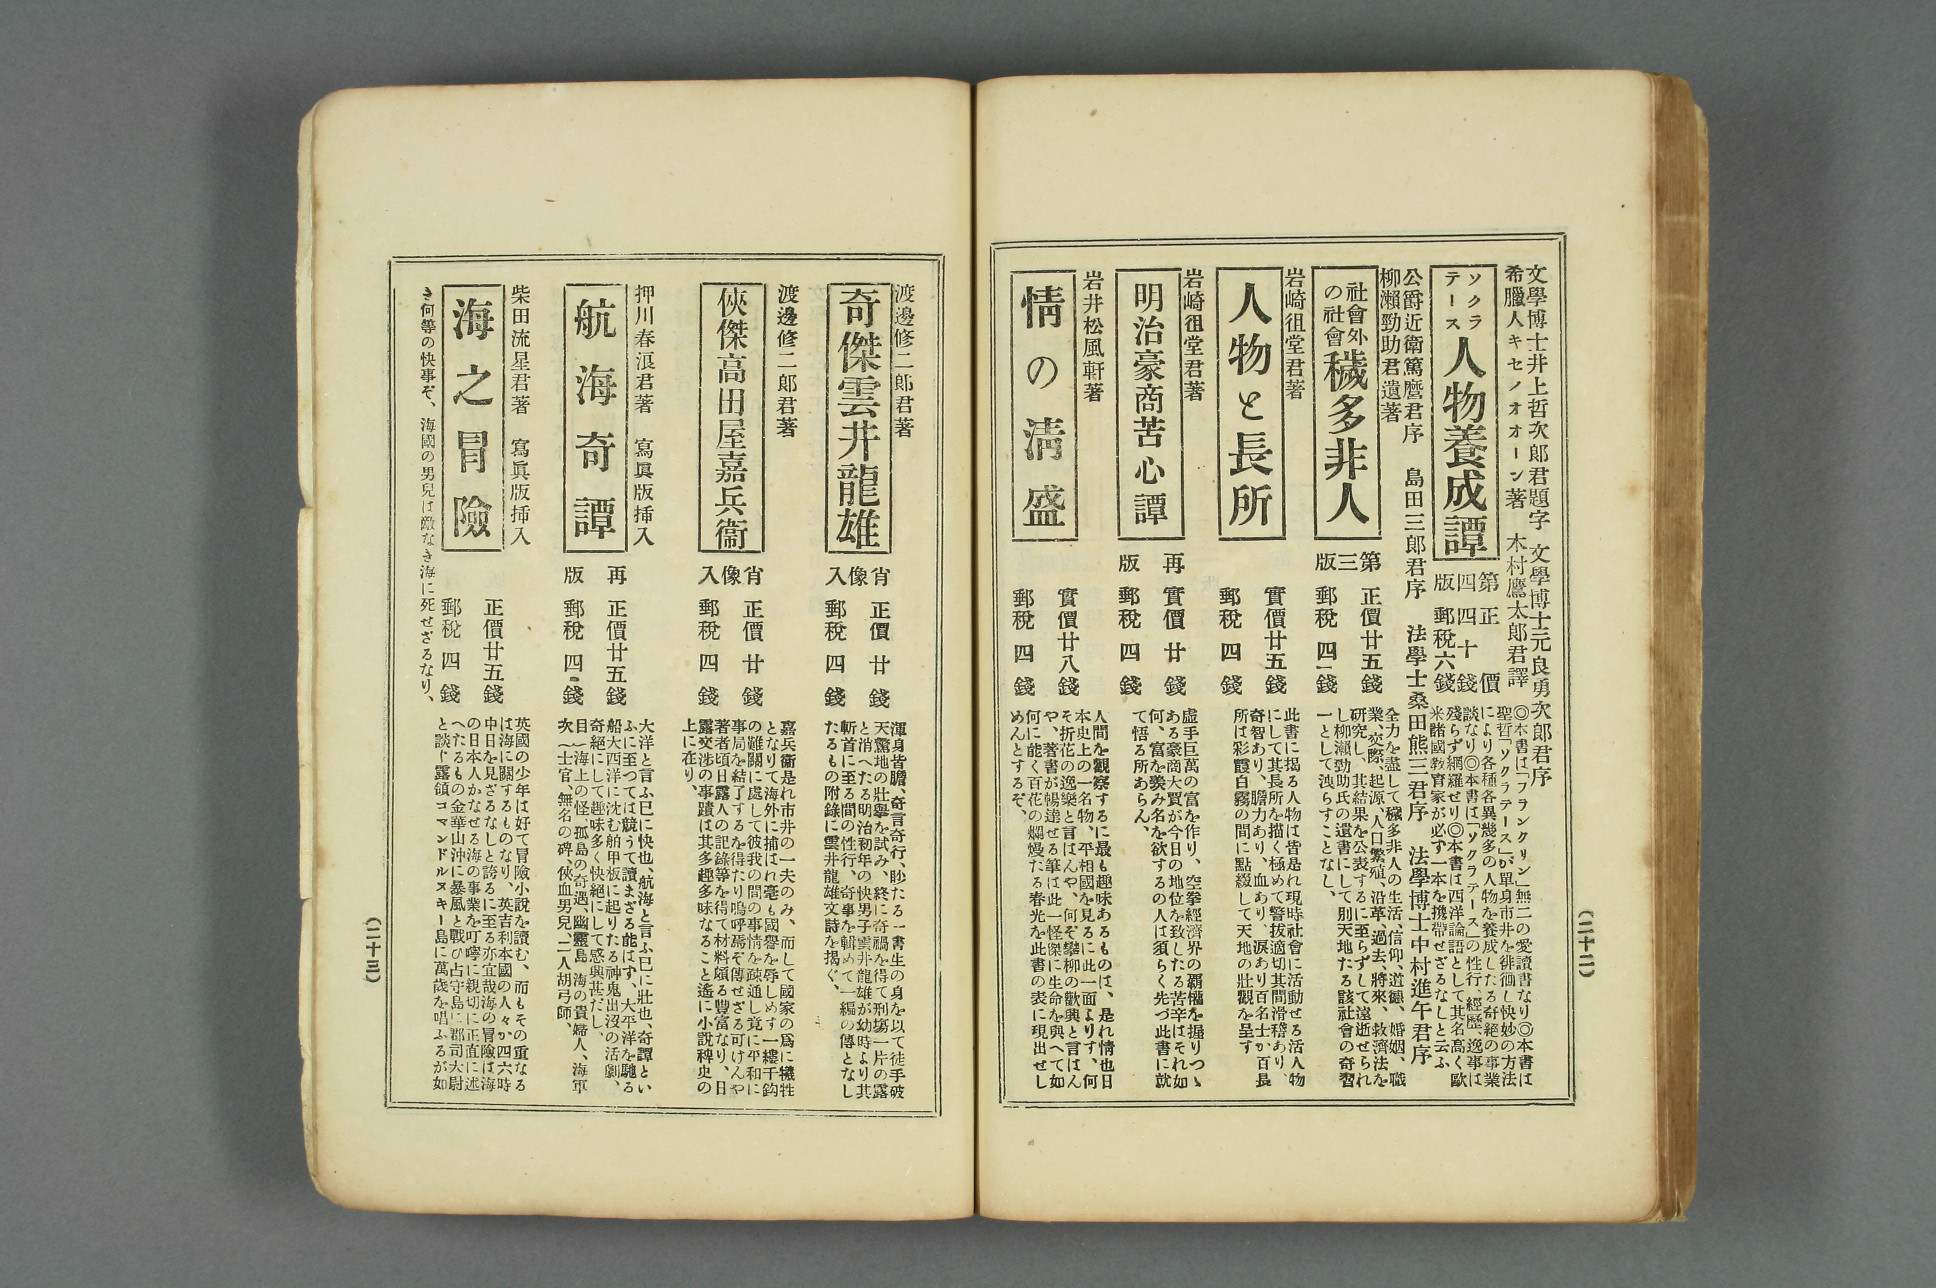 文學博士井上哲次郎君題字　文學博士元良勇次郎君序
希臘人キセノオオーン著　木村鷹太郎君譯
ソクラテース 人物養成譚
第四版 正價四十錢 郵稅六錢
◎本書は「フランクリン」無二の愛讀書なり◎本書は
聖哲「ソクラテース」が單身市井を徘徊し快妙の方法
により各種各異幾多の人物を養成したる奇絕の事業
談なり◎本書は「ソクラテース」の性行、經歷、逸事は
殘らず網羅せり◎本書は西洋論語として其名高く歐
米諸國敎育家が必ず一本を携帶せざるなしと云ふ
公爵近衛篤麿君序　島田三郎君序　法學士桑田熊三君序　法學博士中村進午君序
柳瀨勁助君遺著
社會外の社會 穢多非人
第三版 正價廿五錢 郵稅四錢
全力を盡して穢多非人の生活、信仰、道德、婚姻、職
業、交際、起源、人口繁殖、沿革、過去、將來、救濟法を
研究し、其結果を公表するに至らずして遠逝せられ
し柳瀨勁助氏の遺書にして別天地たる該社會の奇習
一として洩らすことなし、
岩崎徂堂君著
人物と長所
實價廿五錢 郵稅四錢
此書に揭る人物は皆是れ現時社會に活動せる活人物
にして其長所を描く極めて警拔適切其間滑稽あり、
奇智あり、膽力あり、血あり、淚あり百名士か百長
所は彩霞白霧の間に點綴して天地の壯觀を呈す
岩崎徂堂君著
明治豪商苦心譚
再版 實價廿錢 郵稅四錢
虛手巨萬の富を作り、空拳經濟界の覇權を握りつゝ
ある豪商大賈が今日の地位を致したる苦辛はそれ如
何、富を羨み名を欲するの人は須らく先づ此書に就
て悟る所あらん、
岩井松風軒著
情の淸盛
實價廿八錢 郵稅四錢
人間を觀察するに最も趣味あるものは、是れ情也日
本史上の一名物、平相國を見るに此一面よりす、何
そ折花の逸樂と言はんや、何ぞ攀柳の歡興と言はん
や、著書が暢達せる筆は此一怪傑に生命を與へて如
何に能く百花の爛熳たる春光を此書の表に現出せし
めんとするぞ、
（二十二）
渡邊修二郎君著
奇傑雲井龍雄
肖像入 正價廿錢 郵稅四錢
渾身皆膽、奇言奇行、眇たる一書生の身を以て徒手破
天驚地の壯擧を試み、終に奇禍を得て刑塲一片の露
と消へたる明治初年の快男子雲井龍雄が幼時より其
斬首に至る間の性行、奇事を輯めて一編の傳となし
たるもの附錄に雲井龍雄文詩を揭ぐ、
渡邊修二郎君著
俠傑高田屋嘉兵衞
肖像入 正價廿錢 郵稅四錢
嘉兵衞是れ市井の一夫のみ、而して國家の爲に犧牲
となりて海外に捕はれ毫も國譽を辱しめす一縷千鈞
の難關に處して彼我の間の事情を疎通し竟に平和に
事局を結了するを得たり嗚呼焉ぞ傳せざる可けんや
著者頃日露人の記錄等を得て材料頗る豐富なり、日
露交涉の事蹟は其多趣多味なること遙に小說稗史の
上に在り、
押川春浪君著　寫眞版挿入
航海奇譚
再版 正價廿五錢 郵稅四錢
大洋と言ふ已に快也、航海と言ふ已に壯也、奇譚とい
ふに至つては競うて讀まざる能はず、大平洋を馳る
船、大西洋に沈む舶甲板に起りたる神鬼出沒の活劇、
奇絕にして趣味多く快絕にして感興甚だし、
目一海上の怪、孤島の奇遇、幽靈島、海の貴婦人、海軍
次一士官、無名の碑、俠血男兒、二人胡弓師、
柴田流星君著　寫眞版挿入
海之冒險
正價廿五錢 郵稅四錢
英國の少年は好て冒險小說を讀む、而もその重なる
は海に關するものなり、英吉利本國の人々か四六時
中日を見ざるなしと誇るに至る亦宜哉海の冒險は海
の日本人かなせる海の事業を叮嚀に親切に正直に述
へたるもの金華山沖に暴風と戰ひ占守島に郡司大尉
と談し露領コマンドルスキー島に萬歲を唱ふるが如
き何等の快事ぞ、海國の男兒は敵なき海に死せざるなり、
（二十三）